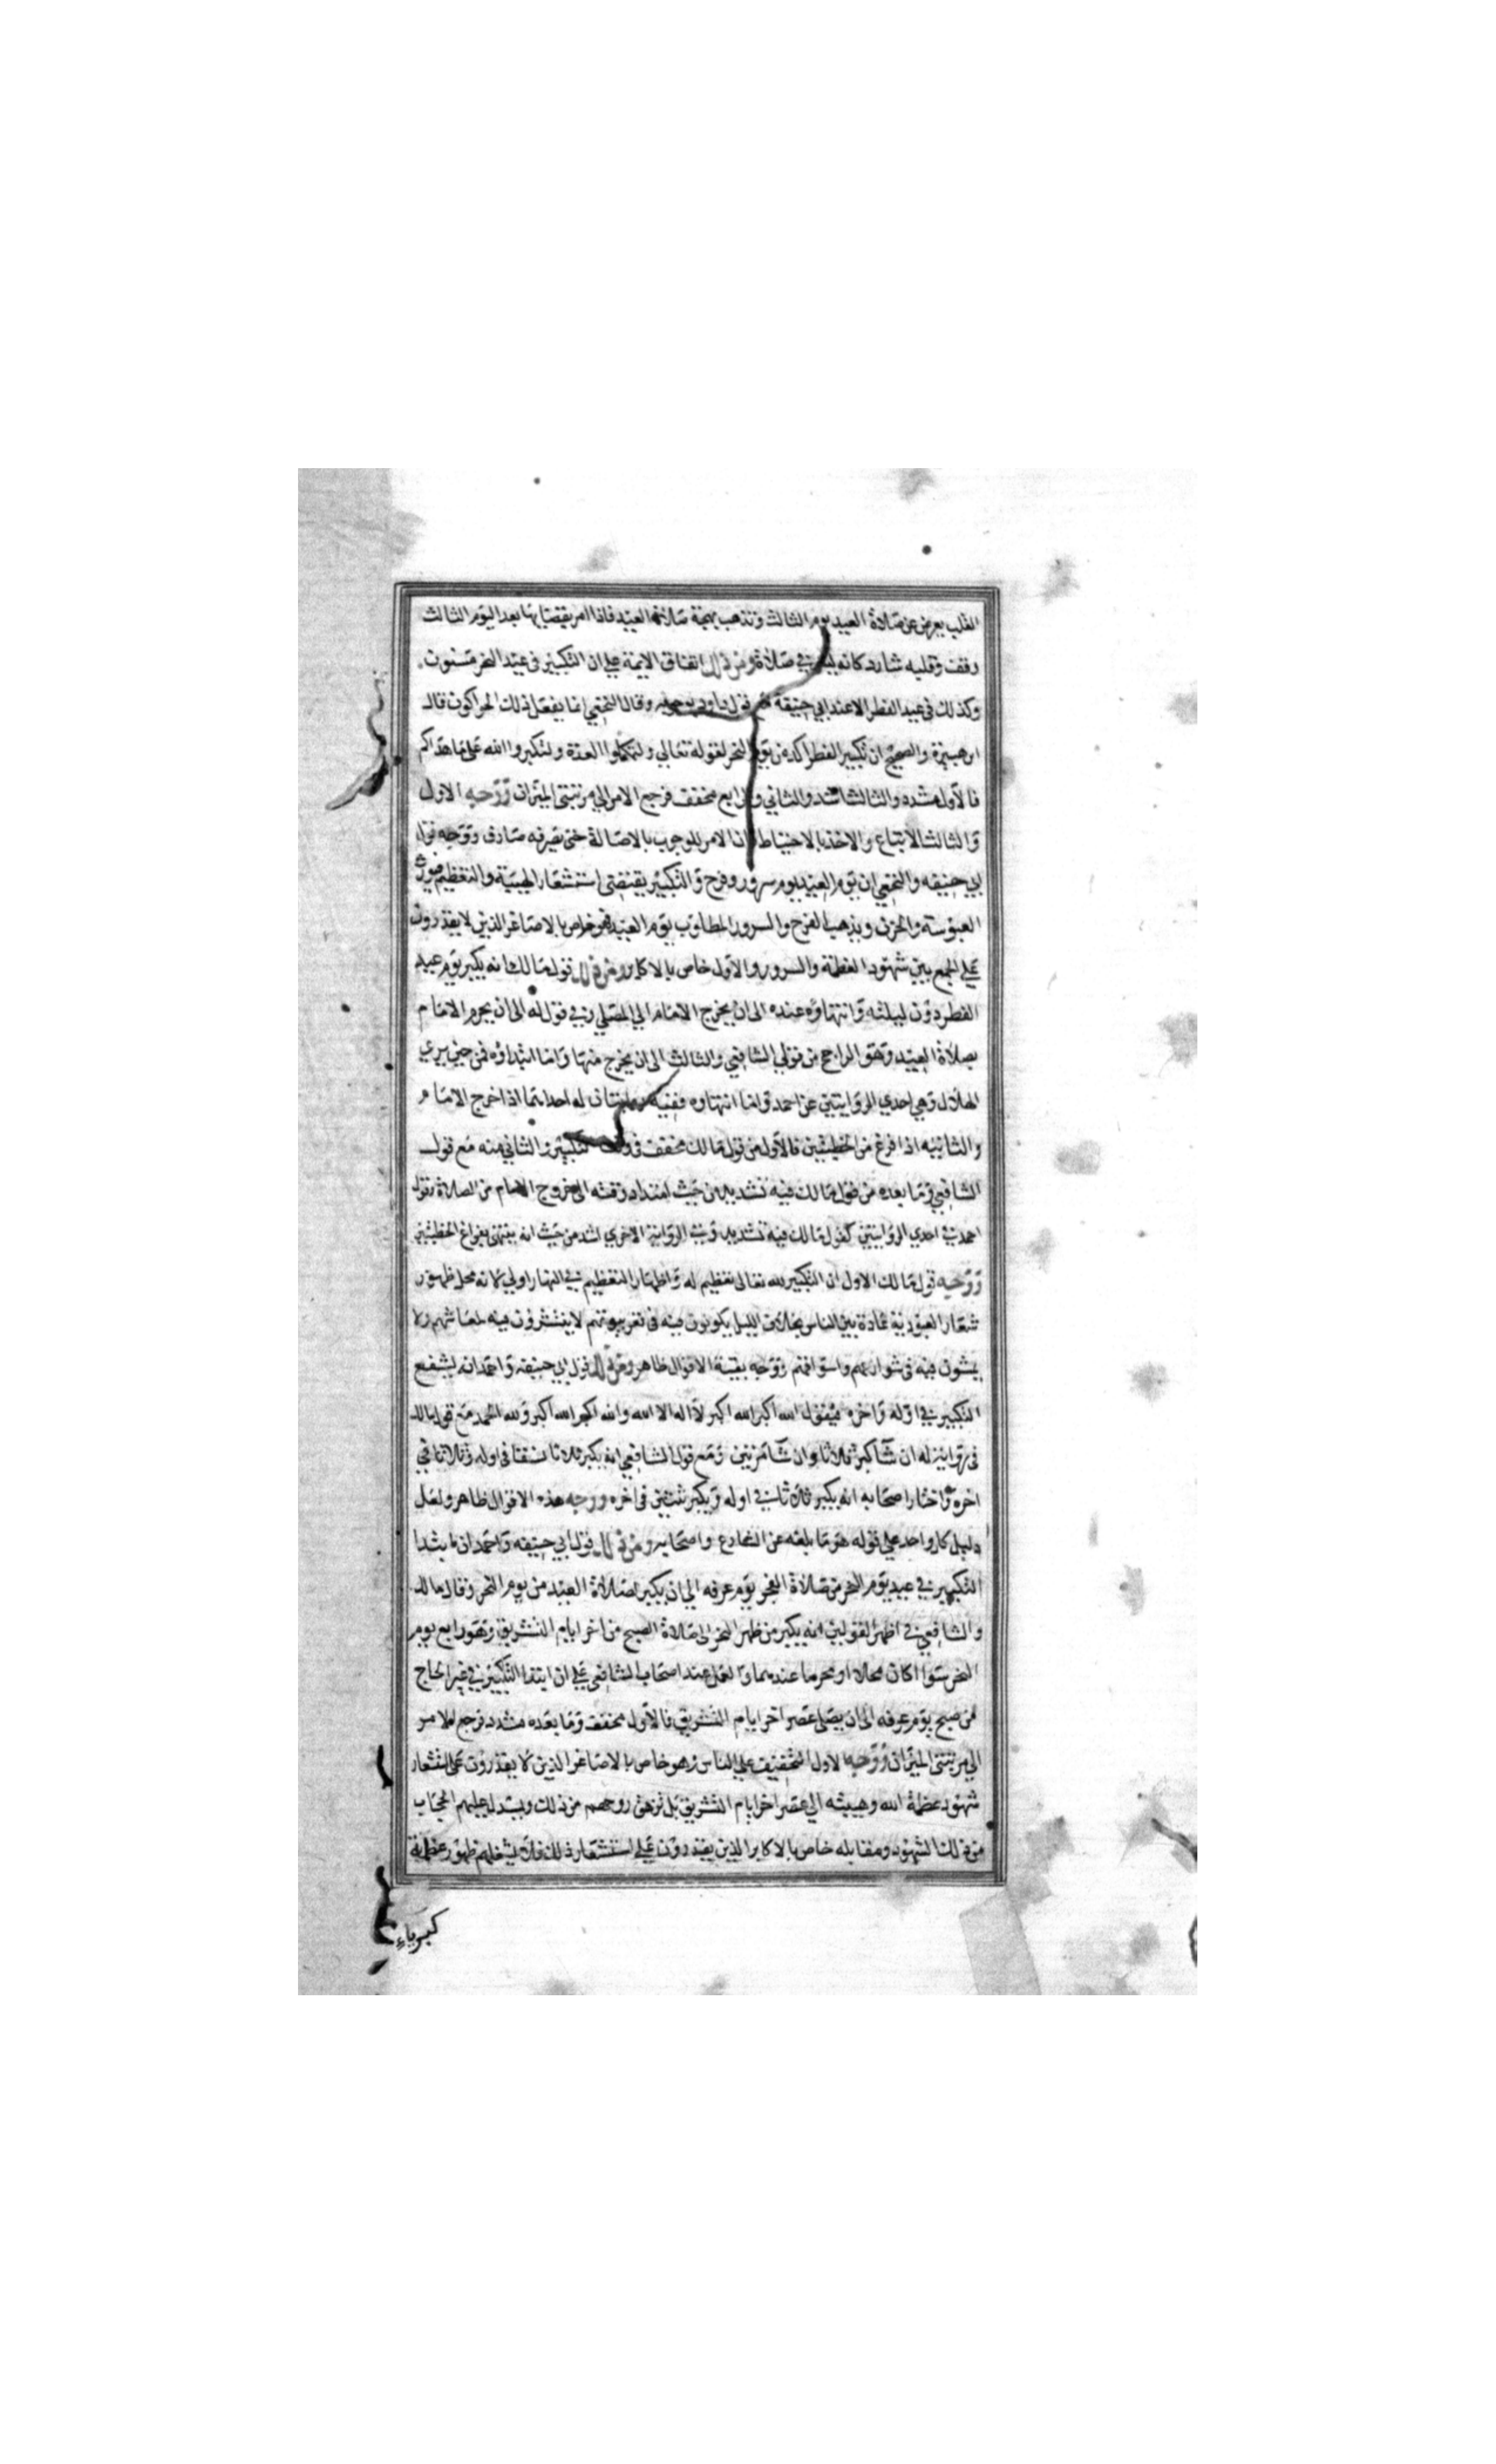 القلب يعرض عن صلاة العيد يوم الثالث وتذهب بهجة صلاة العيد فاذا امر بقضايها بعد اليوم الثالث
وقف وقلبه شارد كانه ليس في صلاة ومن ذلك اتفاق الايمة على ان التكبير في عيد النحر مسنون
وكذلك في عيد الفطر الا عند ابي حنيفة مع قول داود بوجوبه وقال النخعي انما يفعل ذلك الحواكون قال
ابن هبيرة والصحيح ان تكبير الفطر اكد من يوم النحر لقوله تعالي ولتكملوا العدة ولتكبروا الله على ما هداكم
فالاول مشدد والثالث اشد والثاني والرابع مخفف فرجع الامر الي مرتبتي الميزان ووجه الاول
والثالث الاتباع والاخذ بالاحتياط فان الامر للوجوب بالاصالة حتى يصرفه صارف ووجه قول
ابي حنيفه والنخعي ان يوم العيد يوم سرور وفرح والتكبير يقتضي استشعار الهيبة والتعظيم فيورث
العبوسة والحزن ويذهب الفرح والسرور المطلوب يوم العيد فهو خاص بالاصاغر الذين لا يقدرون
على الجمع بين شهود العظمة والسرور والاول خاص بالاكابر ومن ذلك قول مالك انه يكبر يوم عيد
الفطر دون ليلته وانتهاوه عنده الى ان يخرج الامام الي المصلي وفي قول له الى ان يحرم الامام
بصلاة العيد وهو الراجح من قولي الشافعي والثالث الى ان يخرج منها واما ابتداؤه فمن حين يري
الهلال وهي احدي الروايتين عن احمد واما انتهاوه ففيه روايتان له احداهما اذا خرج الامام
والثانيه اذا فرغ من الخطبتين فالاول من قول مالك مخفف في وقت التكبير والثاني منه مع قول
الشافعي وما بعده من قول مالك فيه تشديد من حيث امتداد وقته الى خروج الامام من الصلاة وقول
احمد في احدي الروايتين كقول مالك فيه تشديد وفي الرواية الاخري اشد من حيث انه ينتهى بفراغ الخطبتين
ووجه قول مالك الاول ان التكبير لله تعالى تعظيم له واظهار التعظيم في النهار اولي لانه محل ظهور
شعار العبودية عادة بين الناس بخلاف الليل يكونون فيه في قعر بيوتهم لا ينتشرون فيه لمعاشهم ولا
يمشون فيه في شوارعهم واسواقهم ووجه بقية الاقوال ظاهر ومن ذلك قول ابي حنيفه واحمد انه يشفع
التكبير في اوله واخره فيقول الله اكبر الله اكبر لا اله الا الله والله اكبر الله اكبر ولله الحمد مع قول مالك
في رواية له ان شآ كبر ثلاثا وان شآ مرتين ومع قول الشافعي انه يكبر ثلاثا نسقا في اوله وثلاثا في
اخره واختار اصحابه انه يكبر ثلاثا في اوله ويكبر ثنتين في اخره ووجه هذه الاقوال ظاهر ولعل
دليل كل واحد على قوله هو ما بلغه عن الشارع واصحابه ومن ذلك قول ابي حنيفه واحمد ان ابتدا
التكبير في عيد يوم النحر من صلاة الفجر يوم عرفه الي ان يكبر لصلاة العيد من يوم النحر وقال مالك
والشافعي في اظهر القولين انه يكبر من ظهر النحر الى صلاة الصبح من اخر ايام التشريق وهو رابع يوم
النحر سوا كان محلا او محرما عندهما والعمل عند اصحاب الشافعي على ان ابتدا التكبير في غير الحاج
من صبح يوم عرفه الى ان يصلى عصر اخر ايام التشريق فالاول مخفف وما بعده مشدد فرجع الامر
الي مرتبتي الميزان ووجه الاول التخفيف على الناس وهو خاص بالاصاغر الذين لا يقدرون على استشعار
شهود عظمة الله وهيبته الي عصر اخر ايام التشريق بل تزهق روحهم من ذلك ويسدل عليهم الحجاب
من ذلك الشهود ومقابله خاص بالاكابر الذين يقدرون على استشعار ذلك فلا يشغلهم ظهور عظمة
كبرياء